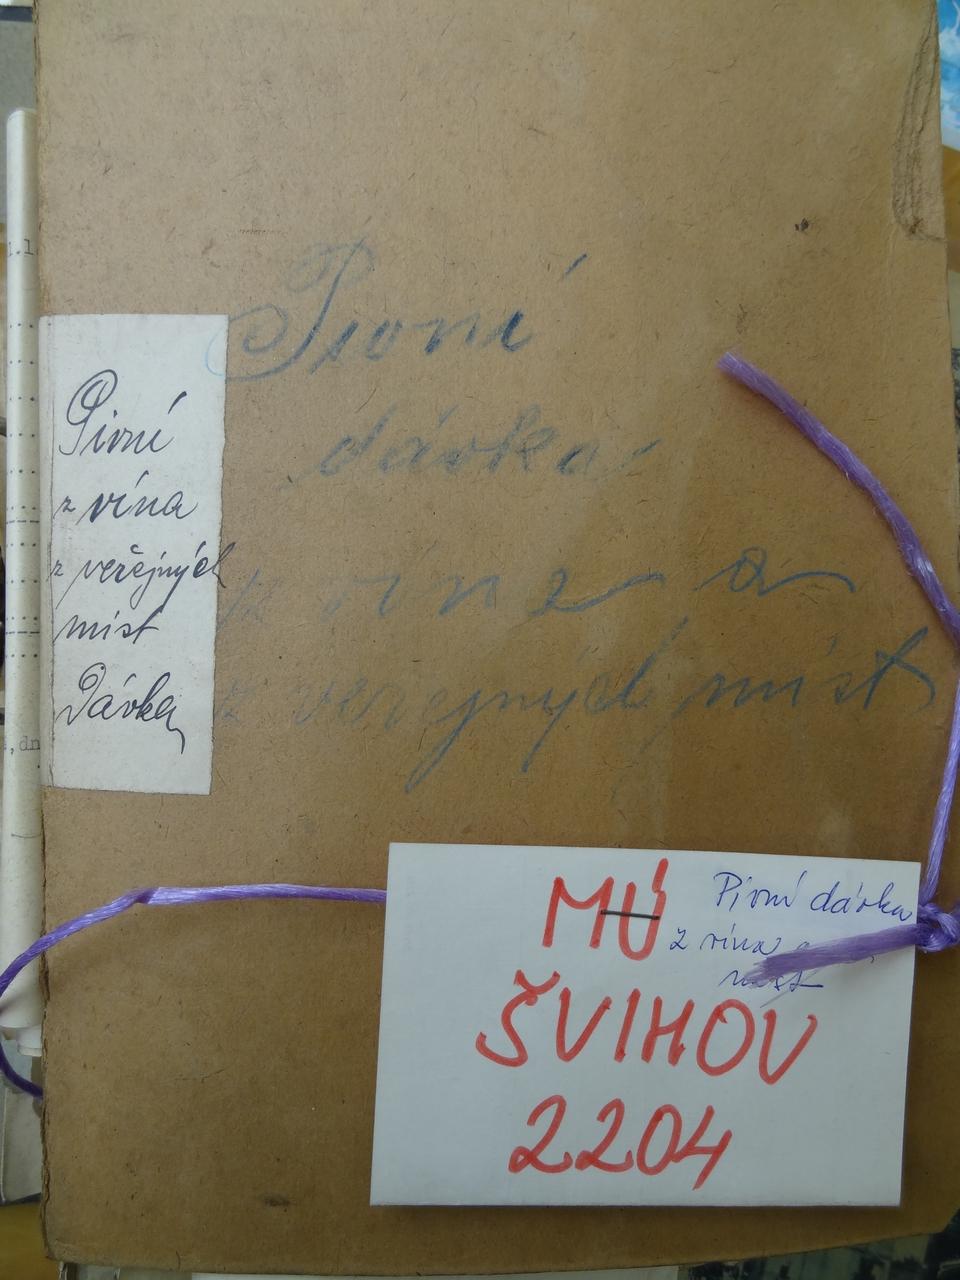 Pivní
dávka
z vína a
z veřejných míst
Pivní
z vína
z veřejných
míst
Dávka
MÚ
ŠVIHOV
2204
Pivní dávka
z vína
míst